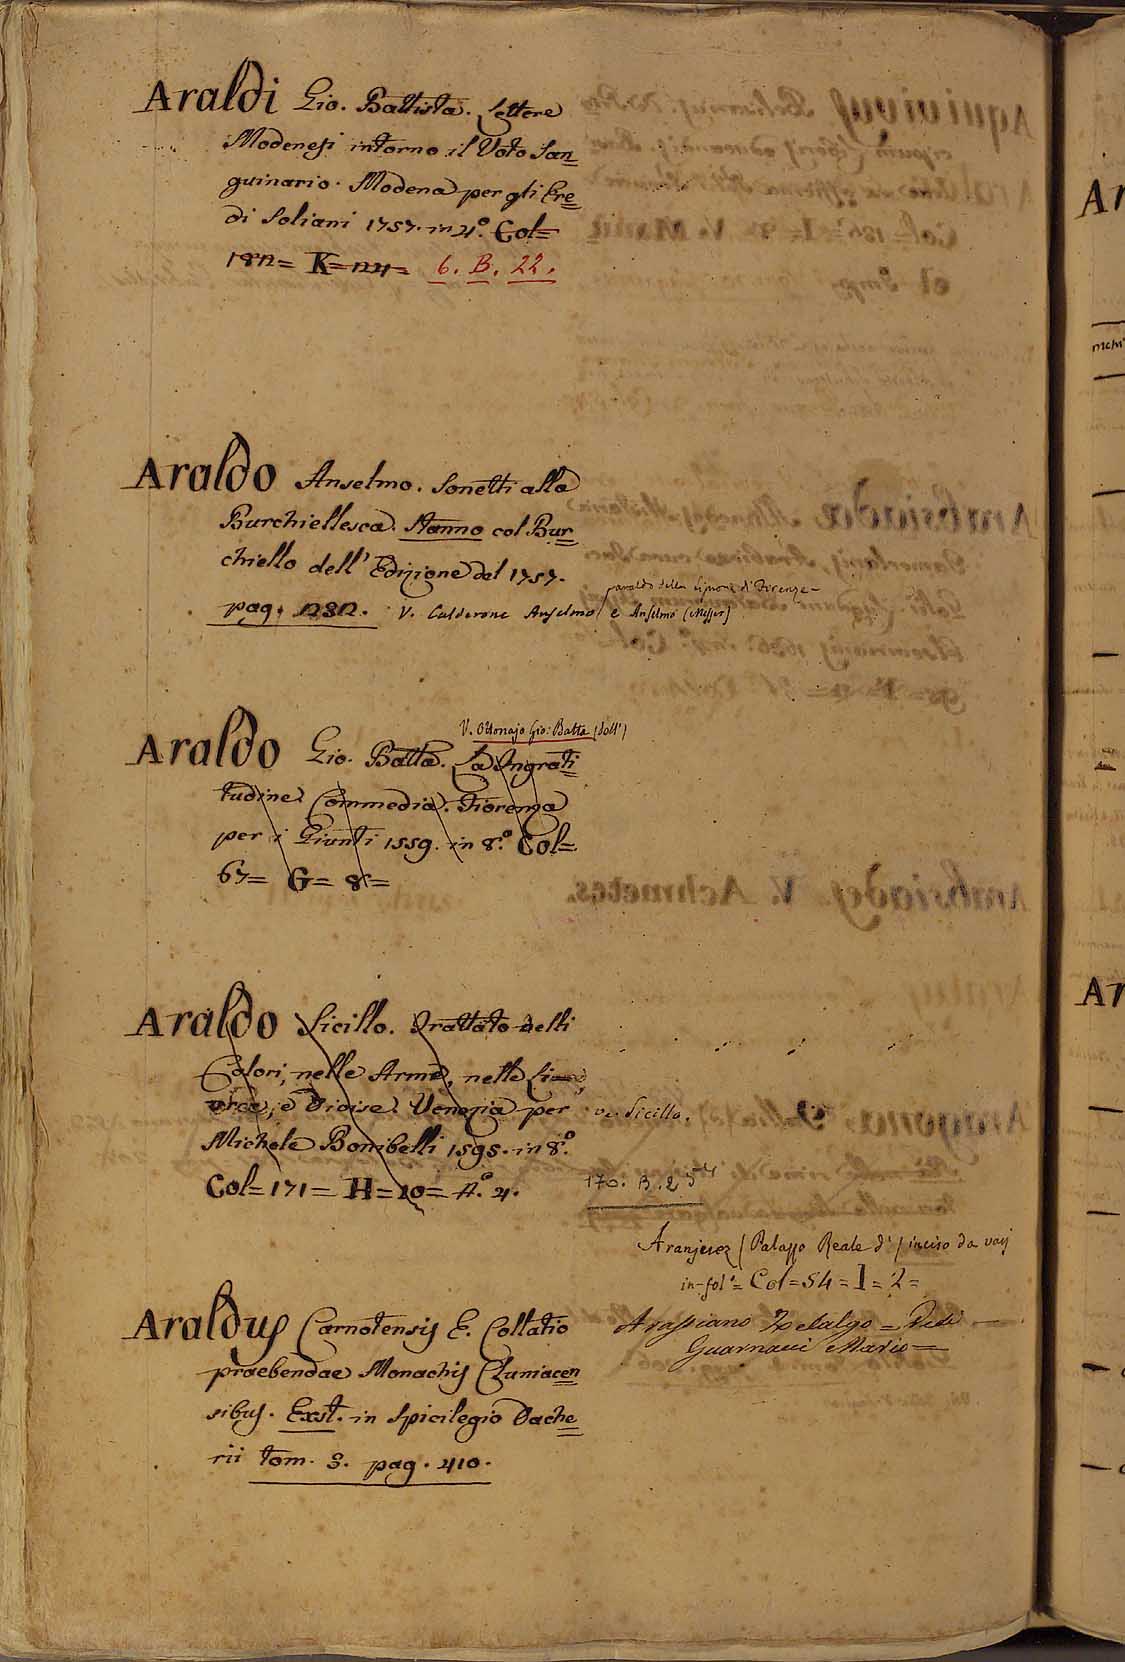 Araldi Gio. Battista. Lettere
Modenesi intorno il Voto San=
guinario. Modena per gli Ere=
di Soliani 1757. in 4.º Col=
K= 6. B. 22.
Araldo Anselmo. Sonetti alla
Burchiellesca. Stanno col Bur=
chiello dell' Edizione del 1757.
pag. V. Calderone Anselmo / araldo della Signoria d'Firenze =
e Anselmo (Messer)
V. Ottonajo Gio: Batta (dell')
Araldo Gio. Batta. La Ingrati=
tudine Commedia. Fiorenza
per i Giunti 1559. in 8.º Col=
67= G= 8=
Araldo Sicillo. Trattato delli
Colori, nelle Arme, nelle Li=
vree, e Divise. Venezia per
Michele Bonibelli 1595. in 8.º
Col= 171= H= 10= n.º 4.
v. Sicillo.
170. B. 25
Aranjuez (Palazzo Reale d') inciso da varj
in-fol.º= Col=54=I=2=
Araldus Carnotensis E. Collatio
praebendae Monachis Cluniacen=
sibus. Exst. in Spicilegio Dache=
rii tom. 3. pag. 410.
Guarnacci Mario=
Ar
Ar